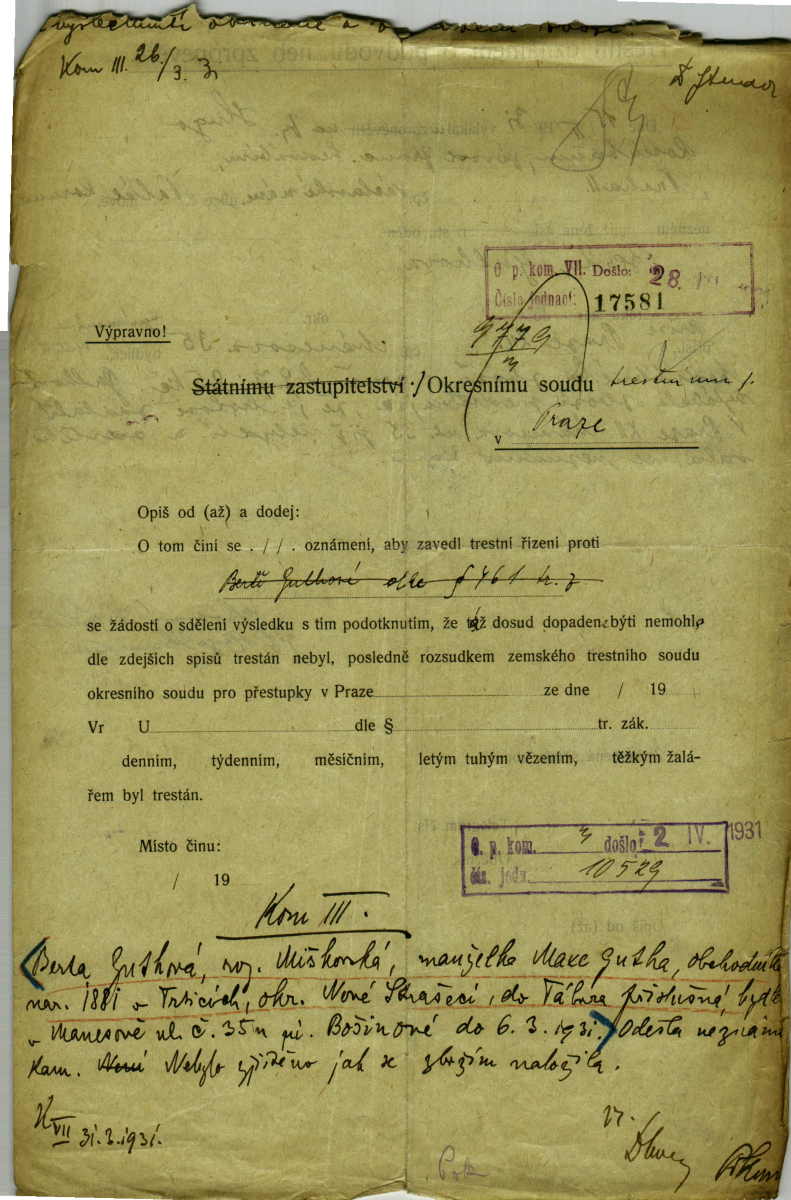 Kom III. 26/3. 31
O p. kom. VII. Došlo: 28. III
Číslo jednací: 17581
Výpravno!
9779
3
Státnímu zastupitelství / Okresnímu soudu trestnímu
v Praze
Opiš od (až) a dodej:
O tom činí se . / / . oznámení, aby zavedl trestní řízení proti
Bertě Guthové dle § 461 tr. z
se žádostí o sdělení výsledku s tím podotknutím, že táž dosud dopadena býti nemohla
dle zdejších spisů trestán nebyl, posledně rozsudkem zemského trestního soudu
okresního soudu pro přestupky v Praze ze dne / 19
Vr U dle § tr. zák.
denním, týdenním, měsíčním, letým tuhým vězením, těžkým žalá-
řem byl trestán.
Místo činu:
/ 19
O. p. kom. 3 došlo: 2 IV. 1931
čís. jedn. 10529
Kom III.
Berta Guthová, roz. Miškovská, manželka Maxe Gutha, obchodníka
nar. 1881 v Třticích, okr. Nové Strašecí, do Tábora příslušná, bydlí
v Manesově ul. č. 35 u pí. Bošinové do 6. 3. 1931. Odešla neznámo
kam. Není Nebylo zjištěno jak se zbožím naložila.
K VII 31. 3. 1931.